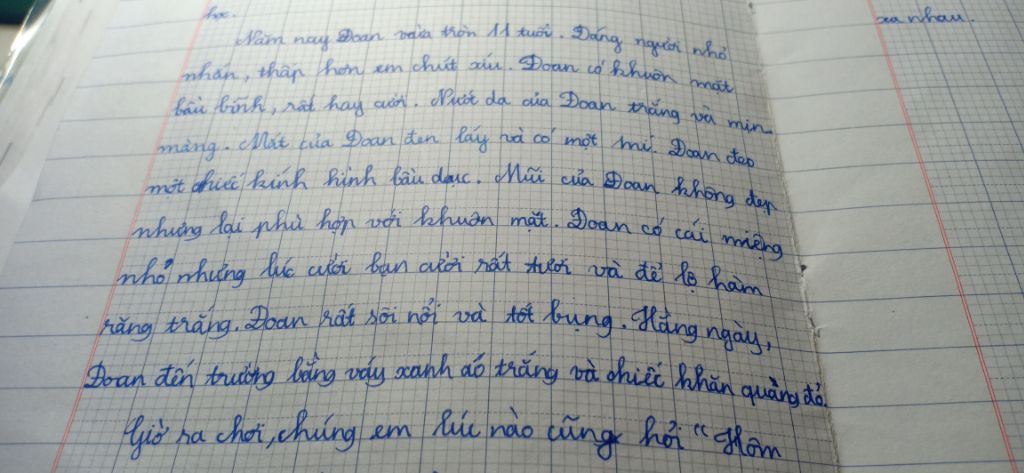 học.
xa nhau.
Năm nay Đoan vừa tròn 11 tuổi. Dáng người nhỏ
nhắn, thấp hơn em chút xíu. Đoan có khuôn mặt
bầu bĩnh, rất hay cười. Nước da của Đoan trắng và mịn
màng. Mắt của Đoan đen láy và có một mí. Đoan đeo
một chiếc kính hình bầu dục. Mũi của Đoan không đẹp
nhưng lại phù hợp với khuôn mặt. Đoan có cái miệng
nhỏ nhưng lúc cười bạn cười rất tươi và để lộ hàm
răng trắng. Đoan rất sôi nổi và tốt bụng. Hằng ngày,
Đoan đến trường bằng váy xanh áo trắng và chiếc khăn quàng đỏ.
Giờ ra chơi, chúng em lúc nào cũng hỏi "Hôm